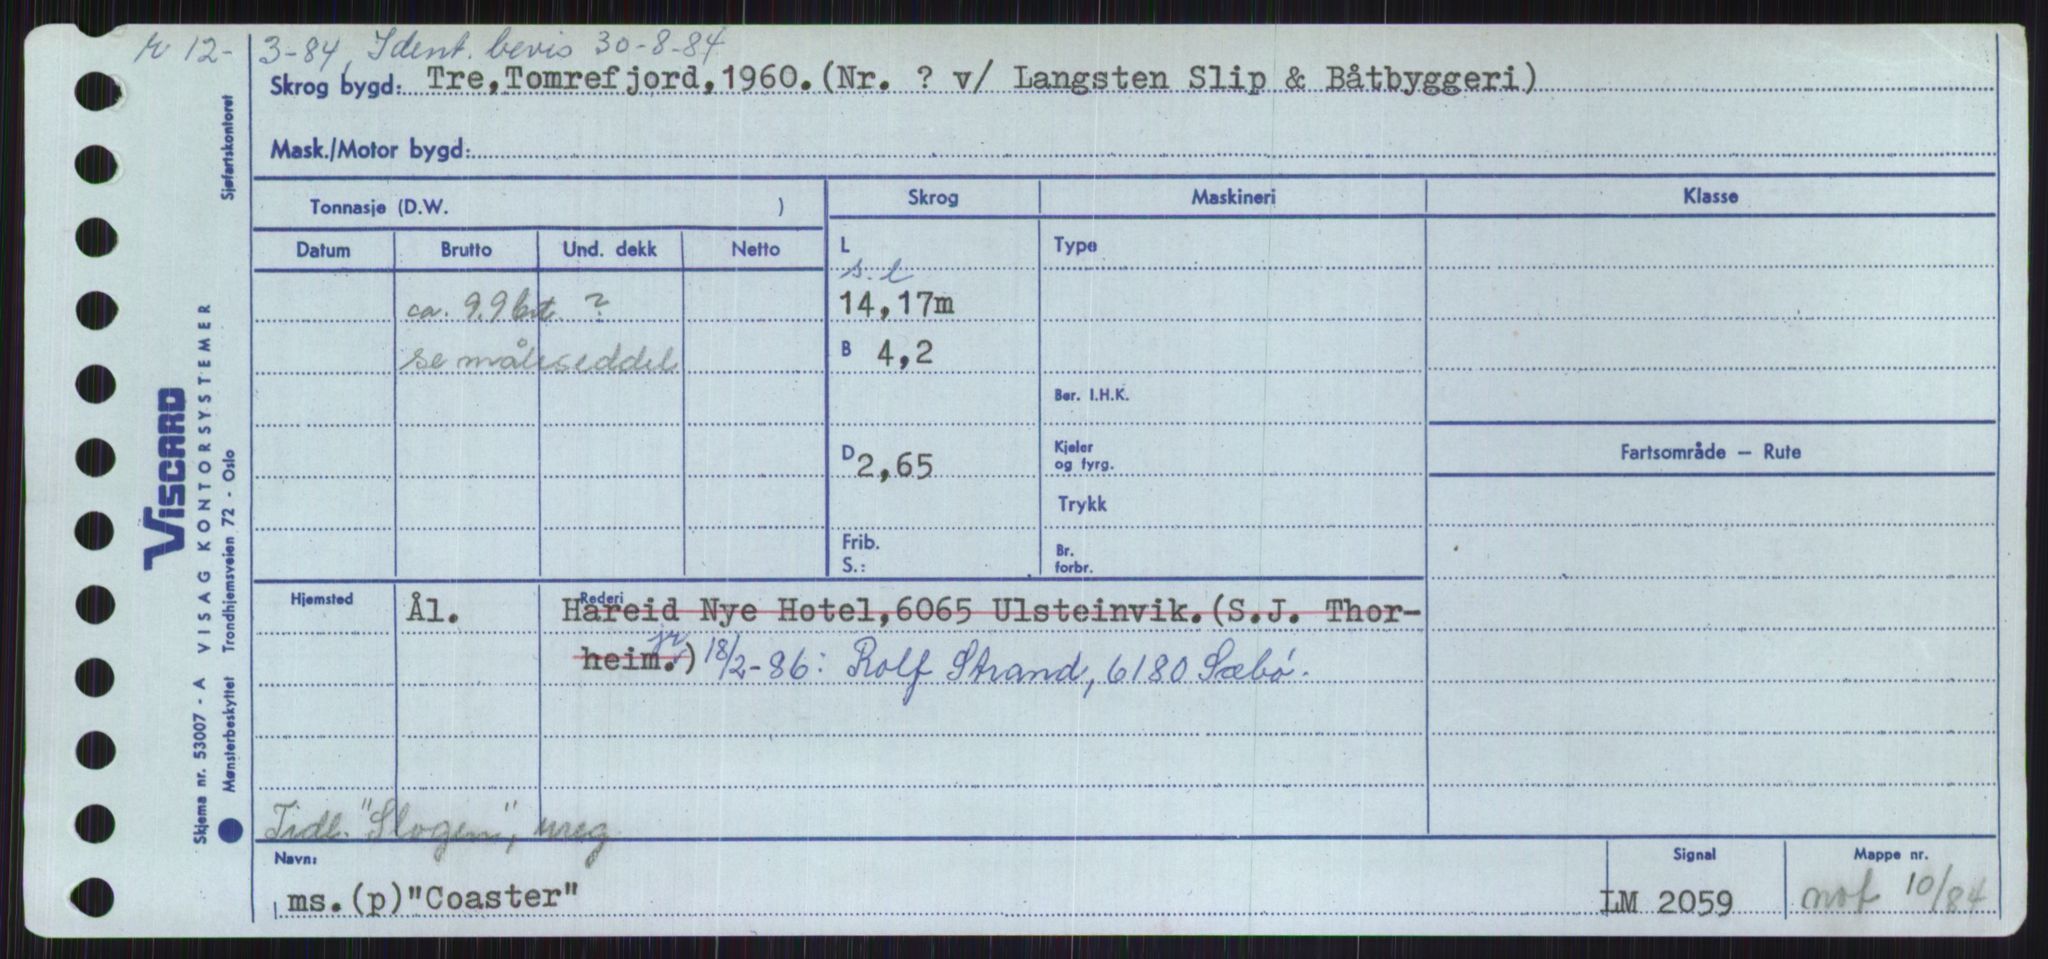 r 12-3-84, Ident. bevis 30-8-84
Skrog bygd: Tre,Tomrefjord,1960.(Nr. ? v/ Langsten Slip & Båtbyggeri)
Mask./Motor bygd:
Tonnasje (D.W. )
Datum Brutto Und. dekk Netto
ca. 9.9 brt. ?
se måleseddel
Skrog Maskineri Klasse
L
s.l
14,17m
B 4,2
D 2,65
Frib.
S.:
Type
Ber. I.H.K.
Kjeler
og fyrg.
Trykk
Br.
forbr.
Fartsområde – Rute
Hjemsted Ål. Rederi
Hareid Nye Hotel,6065 Ulsteinvik.(S.J. Thor-
heim. jr) 18/2-86: Rolf Strand, 6180 Sæbø.
Tidl. "Slogen", ureg
Navn: Signal Mappe nr.
ms.(p)"Coaster" LM 2059 not 10/84
Sjøfartskontoret
VISCARD
VISAG KONTORSYSTEMER
Skjema nr. 53007 - A
Mønsterbeskyttet Trondhjemsveien 72 - Oslo